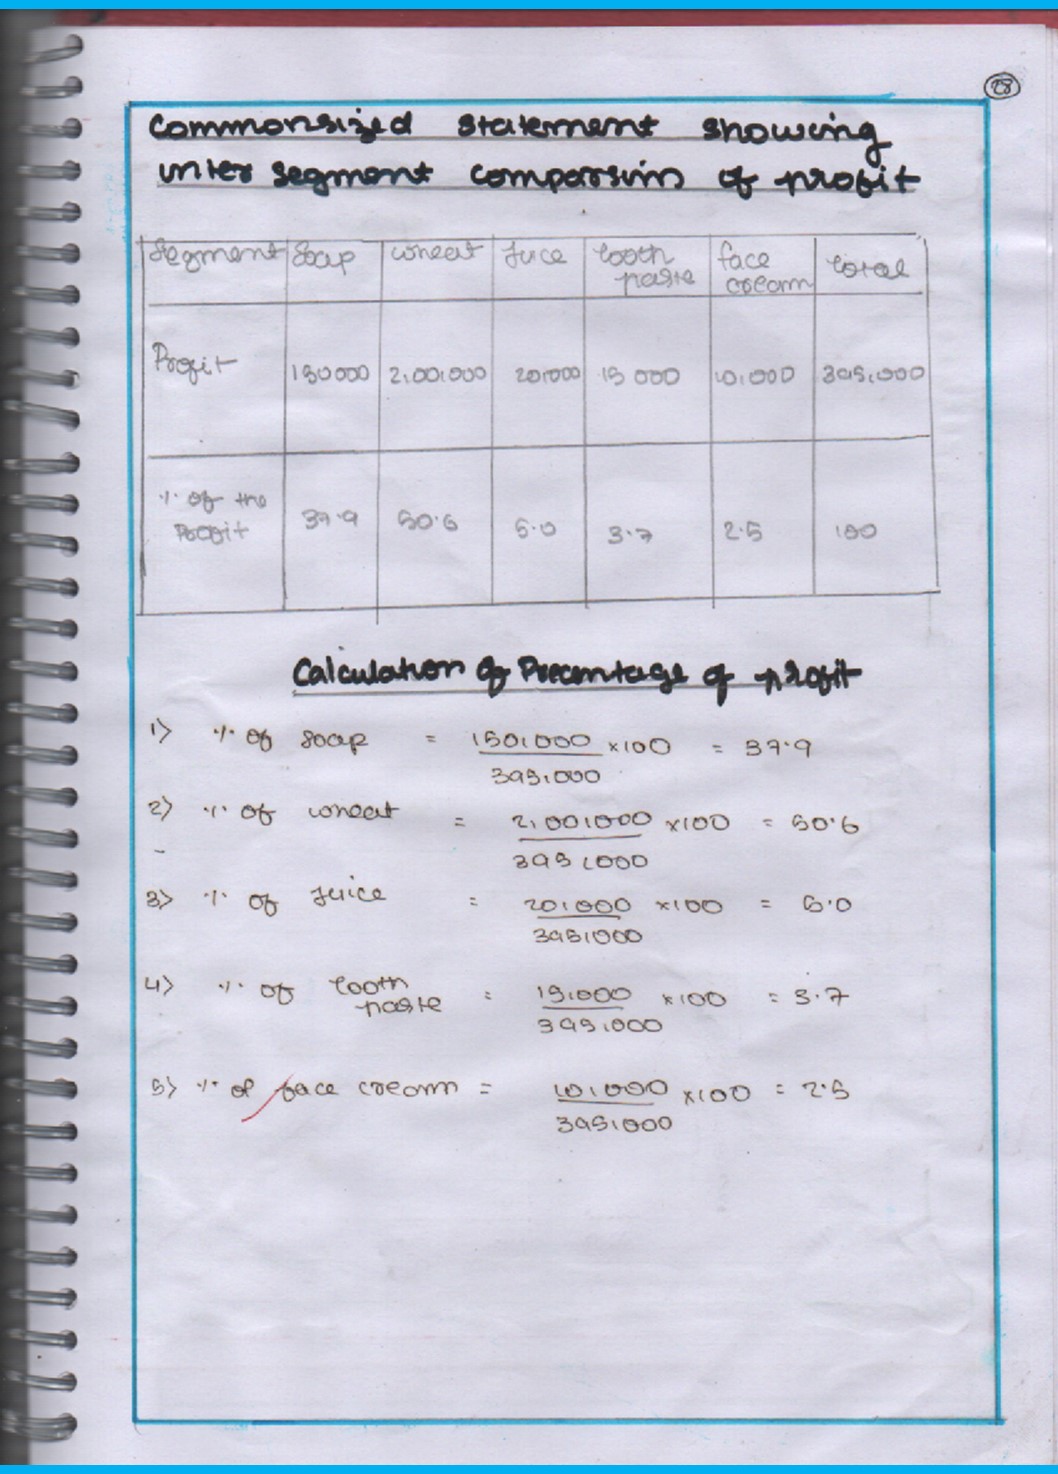 28
Commonsized statement showing
inter segment comparsim of profit
Segment Soap wheat Juce tooth paste face cream total
Profit 150000 2,00,000 20,000 15 000 10,000 395,000
% of the Profit 37.9 50.6 5.0 3.7 2.5 100
Calculation of Precentage of profit
1) % of soap = 150,000 ×100 = 37.9
395,000
2) % of wheat = 2,00,000 ×100 = 50.6
395,000
3) % of Juice = 20,000 ×100 = 5.0
395,000
4) % of tooth paste = 15,000 ×100 = 3.7
395,000
5) % of face cream = 10,000 ×100 = 2.5
395,000